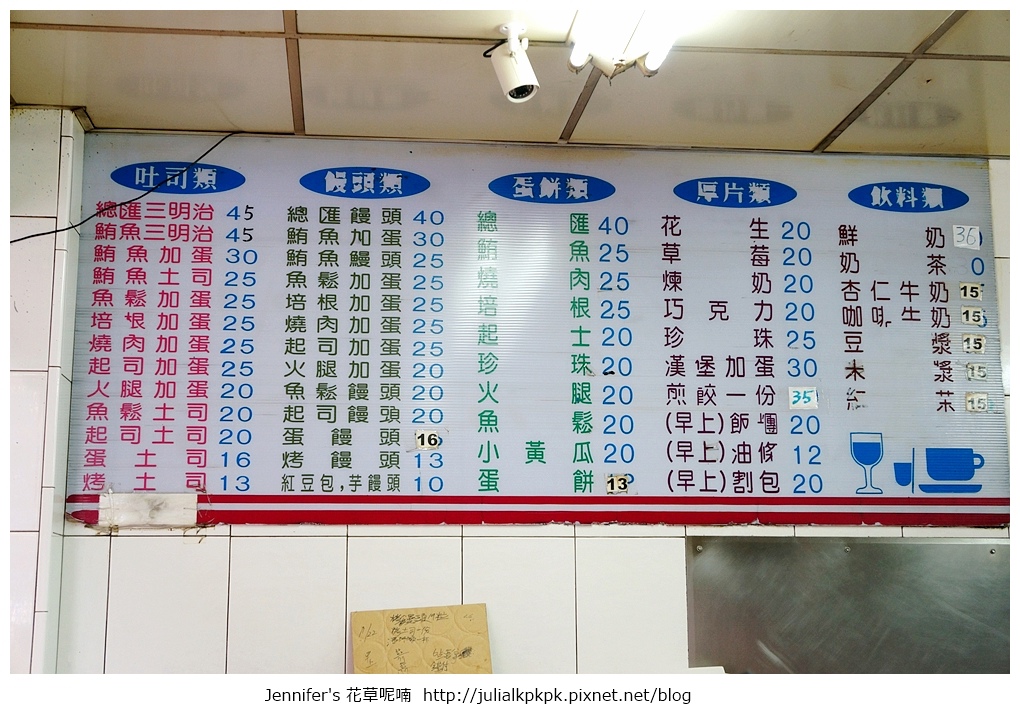 吐司類
總匯三明治 45
鮪魚三明治 45
鮪魚加蛋 30
鮪魚土司 25
魚鬆加蛋 25
培根加蛋 25
燒肉加蛋 25
起司加蛋 25
火腿加蛋 20
魚鬆土司 20
起司土司 20
蛋土司 16
烤土司 13
饅頭類
總匯饅頭 40
鮪魚加蛋 30
鮪魚饅頭 25
魚鬆加蛋 25
培根加蛋 25
燒肉加蛋 25
起司加蛋 25
火腿加蛋 20
魚鬆饅頭 20
起司饅頭 20
蛋饅頭 16
烤饅頭 13
紅豆包,芋饅頭 10
蛋餅類
總匯 40
鮪魚 25
燒肉 25
培根 25
起士 20
珍珠 20
火腿 20
魚鬆 20
小黃瓜 20
蛋餅 13
厚片類
花生 20
草莓 20
煉奶 20
巧克力 20
珍珠 25
漢堡加蛋 30
煎餃一份 35
(早上)飯糰 20
(早上)油條 12
(早上)割包 20
飲料類
鮮奶 36
奶茶 0
杏仁牛奶 15
咖啡牛奶 15
豆漿 15
米漿 15
紅茶 15
Jennifer's 花草呢喃 http://julialkpkpk.pixnet.net/blog